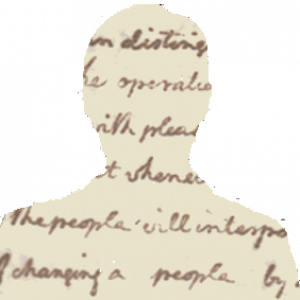 in disting
he operatio
with pleas
t whenev
The people will interpo
of changing a people by